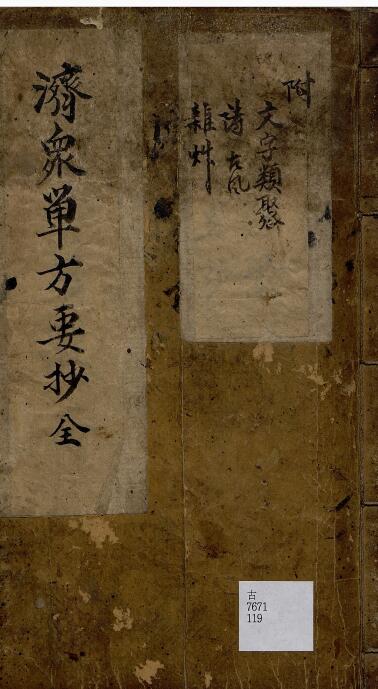 附
文字類聚
詩 古風
雜
濟衆單方要抄 全
古
7671
119